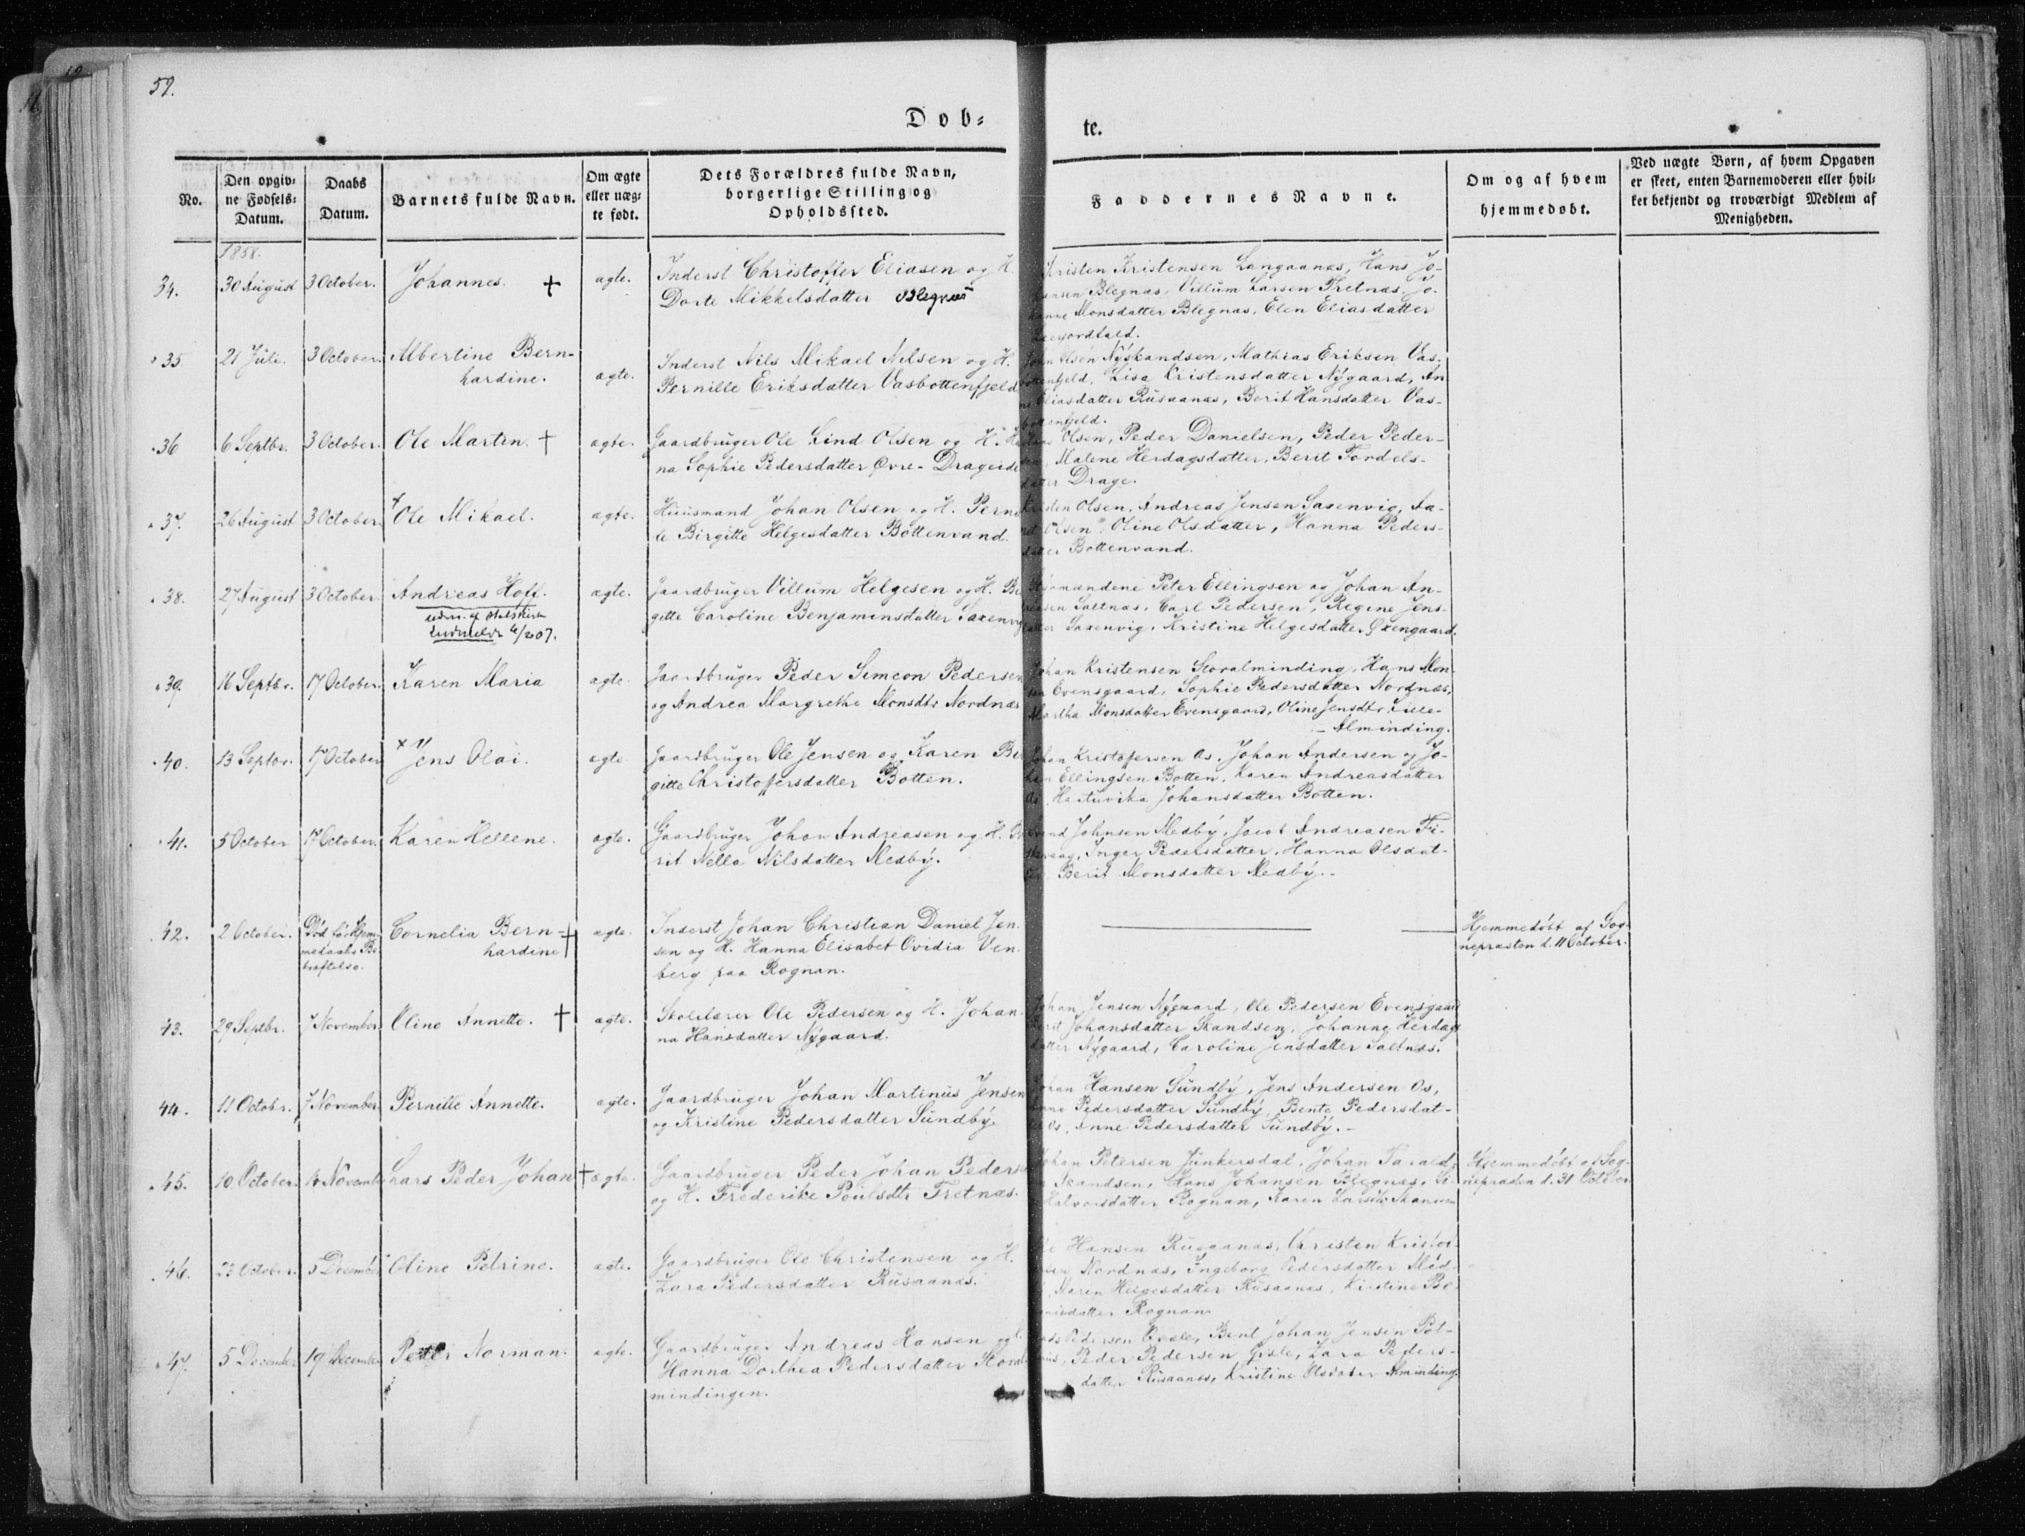 59.
Døb-
te.
No.
Den opgiv-
ne Fødsels-
Datum.
Daabs
Datum.
Barnets fulde Navn.
Om ægte
eller uæg-
te født.
Dets Forældres fulde Navn,
borgerlige Stilling og
Opholdssted.
Faddernes Navne.
Om og af hvem
hjemmedøbt.
Ved uægte Børn, af hvem Opgaven
er skeet, enten Barnemoderen eller hvil-
ket bekjendt og troværdigt Medlem af
Menigheden.
1858.
34.
30 August
3 October.
Johannes. +
ægte.
Inderst Christoffer Eliasen og H.
Dorte Mikkelsdatter Blegnæs
Kristen Kristensen Langaanæs, Hans Jo-
hansen Blegnæs, Villum Larsen Fretnæs, Jo-
hanne Monsdatter Blegnæs, Elen Eliasdatter
35.
21 Juli.
3 October.
Albertine Bern-
hardine.
ægte.
Inderst Nils Mikael Nilsen og H.
Pernille Eriksdatter Vasbottenfjeld
John Olsen Nyskandsen, Mathias Eriksen Vas-
bottenfjeld, Lisa Kristensdatter Nygaard, An
Eliasdatter Rusaanæs, Berit Hansdatter Vas-
bottenfjeld.
36
6 Septbr.
3 October.
Ole Martin. +
ægte.
Gaardbruger Ole Lind Olsen og H. Han
na Sophie Pedersdatter Øvre-Drageide
Olsen, Peder Danielsen, Peder Peder-
sen, Malene Herdagsdatter, Berit Tordels-
datter Drage.
37.
26 August
3 October.
+ Ole Mikael.
ægte.
Huusmand Johan Olsen og H. Pernil
le Birgitte Helgesdatter Bottenvand.
Kristen Olsen, Andreas Jensen Saxenvig, Aa-
Olsen, Oline Olsdatter, Hanna Peders-
datter Bottenvand.
38.
27 August
3 October.
Andreas Hoff.
4/207.
ægte.
Gaardbruger Villum Helgesen og H. Bir
gitte Caroline Benjaminsdatter Saxenvig
Peter Ellingsen og Johan An-
dreasen Saltnæs, Carl Pedersen, Regine Jens-
datter Saxenvig, Kristine Helgesdatter Øxengaard.
39.
16 Septbr.
17 October.
Karen Maria
ægte.
Gaardbruger Peder Simeon Pedersen
og Andrea Margrethe Monsdtr Nordnæs
Johan Kristensen Storalminding, Hans Mon-
sen Evensgaard, Sophie Pedersdatter Nordnæs,
Martha Monsdatter Evensgaard, Oline Jensdtr. Lille-
- Alminding.
40.
13 Septbr.
17 October
Jens Olai.
ægte.
Gaardbruger Ole Jensen og Karen Bir
gitte Christoffersdatter Botten.
Johan Kristofersen Os, Johan Andersen og Jo-
han Ellingsen Botten, Karen Andreasdatter
Os, Johansdatter Botten.
41.
5 October
17 October.
Karen Hellene.
ægte.
Gaardbruger Johan Andreasen og H. Be
rit Nella Nilsdatter Medby.
Johnsen Medby, Jacob Andreasen Fi-
skevaag, Inger Pedersdatter, Hanna Olsdat-
ter, Berit Monsdatter Medby.
42.
2 October.
Død før Hjem-
medaabs Be-
kræftelse.
Cornelia Bern-
hardine +
ægte.
Inderst Johan Christian Daniel Jen-
sen og H. Hanna Elisabet Ovidia Ven-
berg paa Rognan.
Hjemmedøbt af Sog-
nepræsten d. 11 October.
43.
29 Septbr.
7 November.
Oline Annette. +
ægte.
Skolelærer Ole Pedersen og H. Johan-
na Hansdatter Nygaard.
Johan Jensen Nygaard, Ole Pedersen Evensgaard
Berit Johansdatter Skandsen, Johanna Herdags
datter Nygaard, Caroline Jensdatter Saltnæs.
44.
11 Octobr.
7 November
Pernille Annette.
ægte.
Gaardbruger Johan Martinus Jensen
og Kristine Pedersdatter Sundby.
Johan Hansen Sundby, Jens Andersen Os,
Anne Pedersdatter Sundby, Bente Pedersdat-
ter Os, Anne Pedersdatter Sundby. -
45.
10 October.
14 Novemb
Lars Peder Johan +
ægte.
Gaardbruger Peder Johan Pedersen
og H. Frederike Poulsdtr Fretnæs.
Johan Petersen Junkersdal, Johan
Skandsen, Hans Johansen Blegnæs,
Halvorsdatter Rognan, Karen Larsdtr Skansen
Hjemmedøbt af Sog-
nepræsten d. 31 October
46.
23 October.
5 Decembr
Oline Petrine.
ægte.
Gaardbruger Ole Christensen og H.
Lara Pedersdatter Rusaanæs.
Ole Hansen Rusaanæs, Christen Kristof-
fersen Nordnæs, Ingeborg Pedersdatter Med-
by, Maren Helgesdatter Rusaanæs, Kirstine
datter Rognan
47.
5 December
19 December
Peder Norman.
ægte.
Gaardbruger Andreas Hansen og
Hanna Dorthea Pedersdatter Storal
mindingen.
Pedersen Bent Johan Jensen Pot-
hus, Peder Pedersen Lara Peders-
datter Rusaanæs, Kristine Olsdatter Alminding.